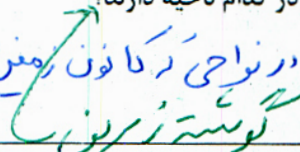 در کدام ناحیه دارند؟
در نواحی که کانون زمین
گوشته زیرین